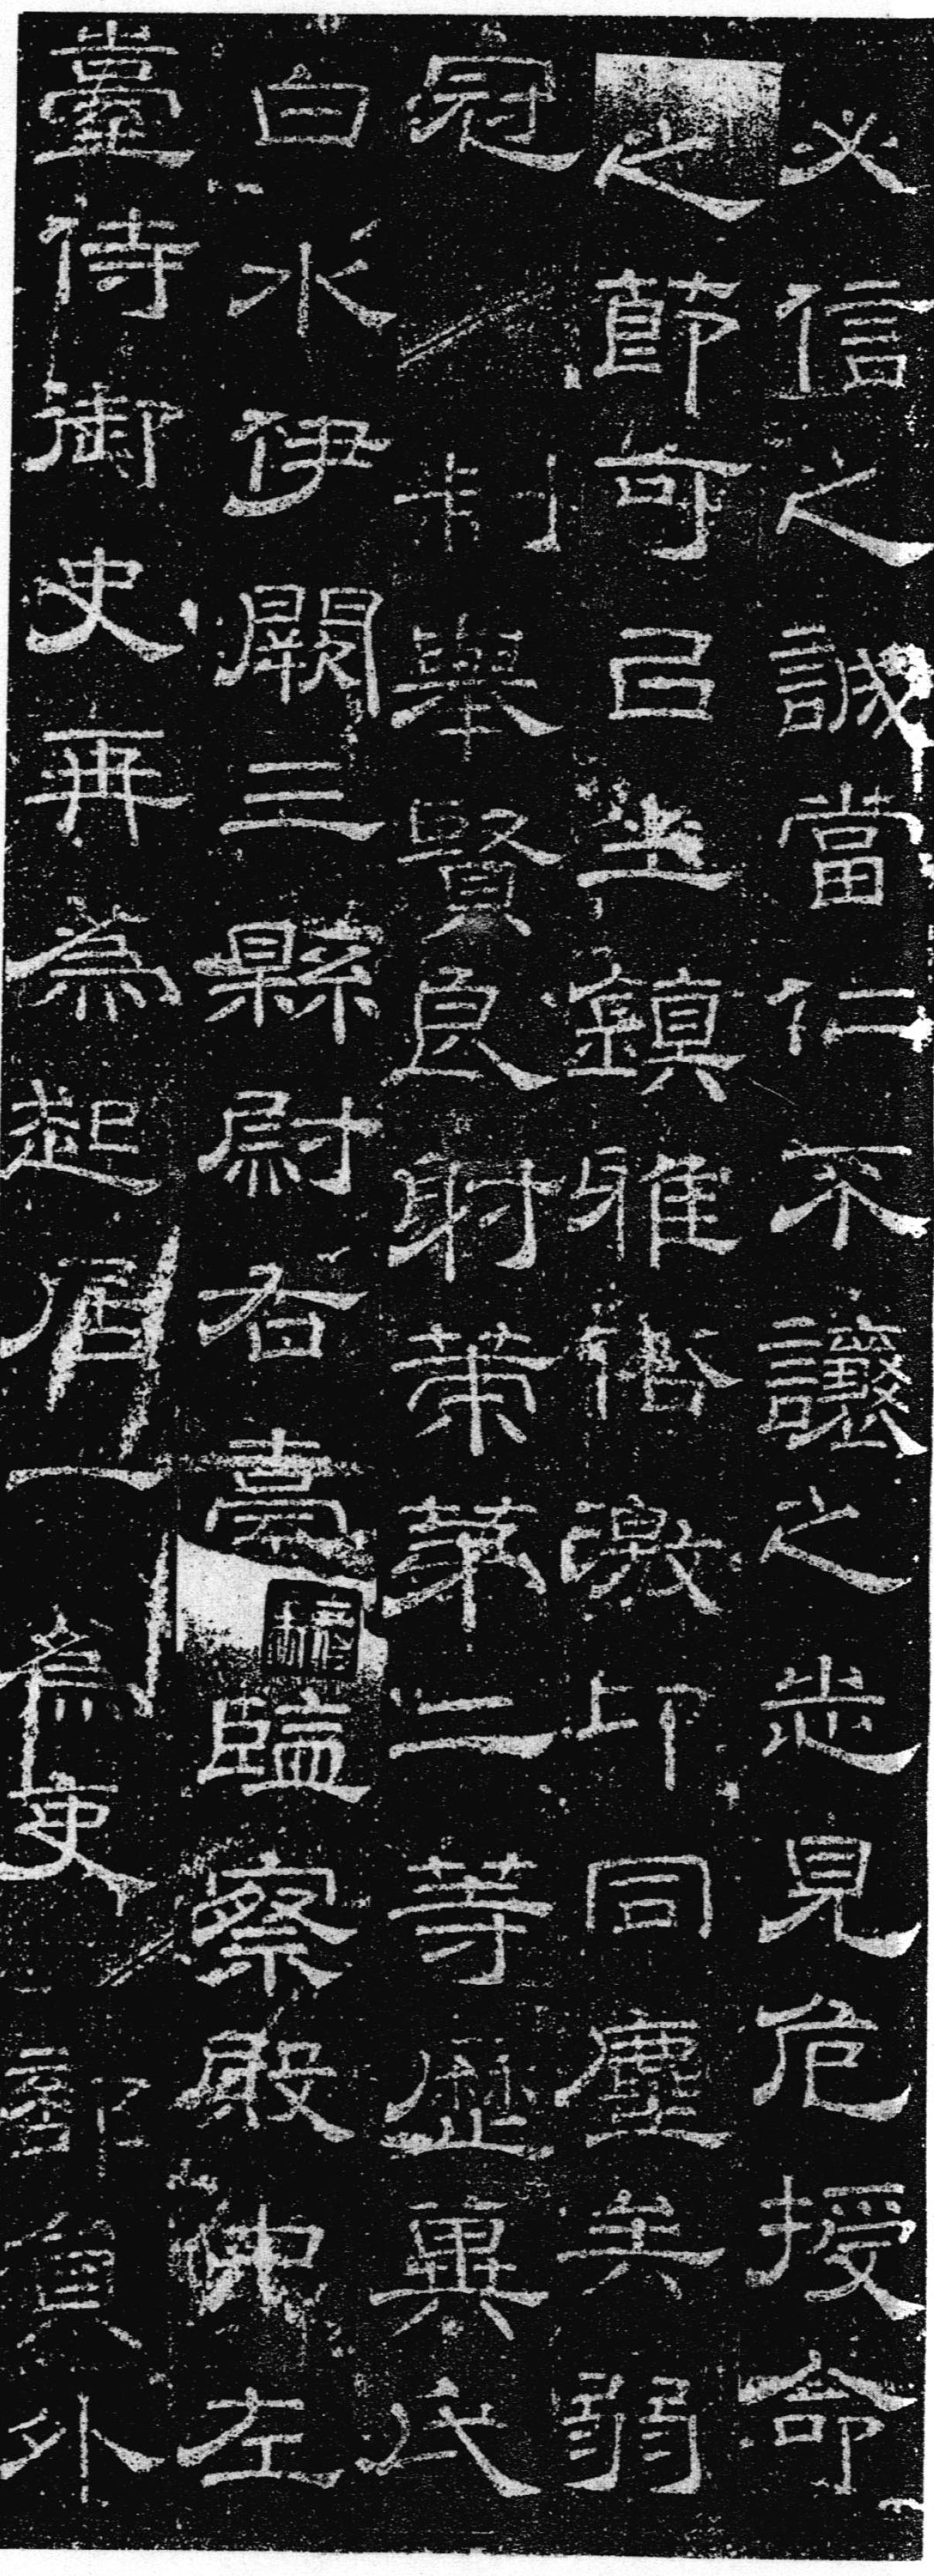 必信之誠當仁不讓之志見危授命
之節可以坐鎮雅俗激卬同塵矣弱
冠制舉賢良射策第二等歷冀氏
白水伊闕三縣尉右臺監察殿中左
臺侍御史再為起居一為吏部員外